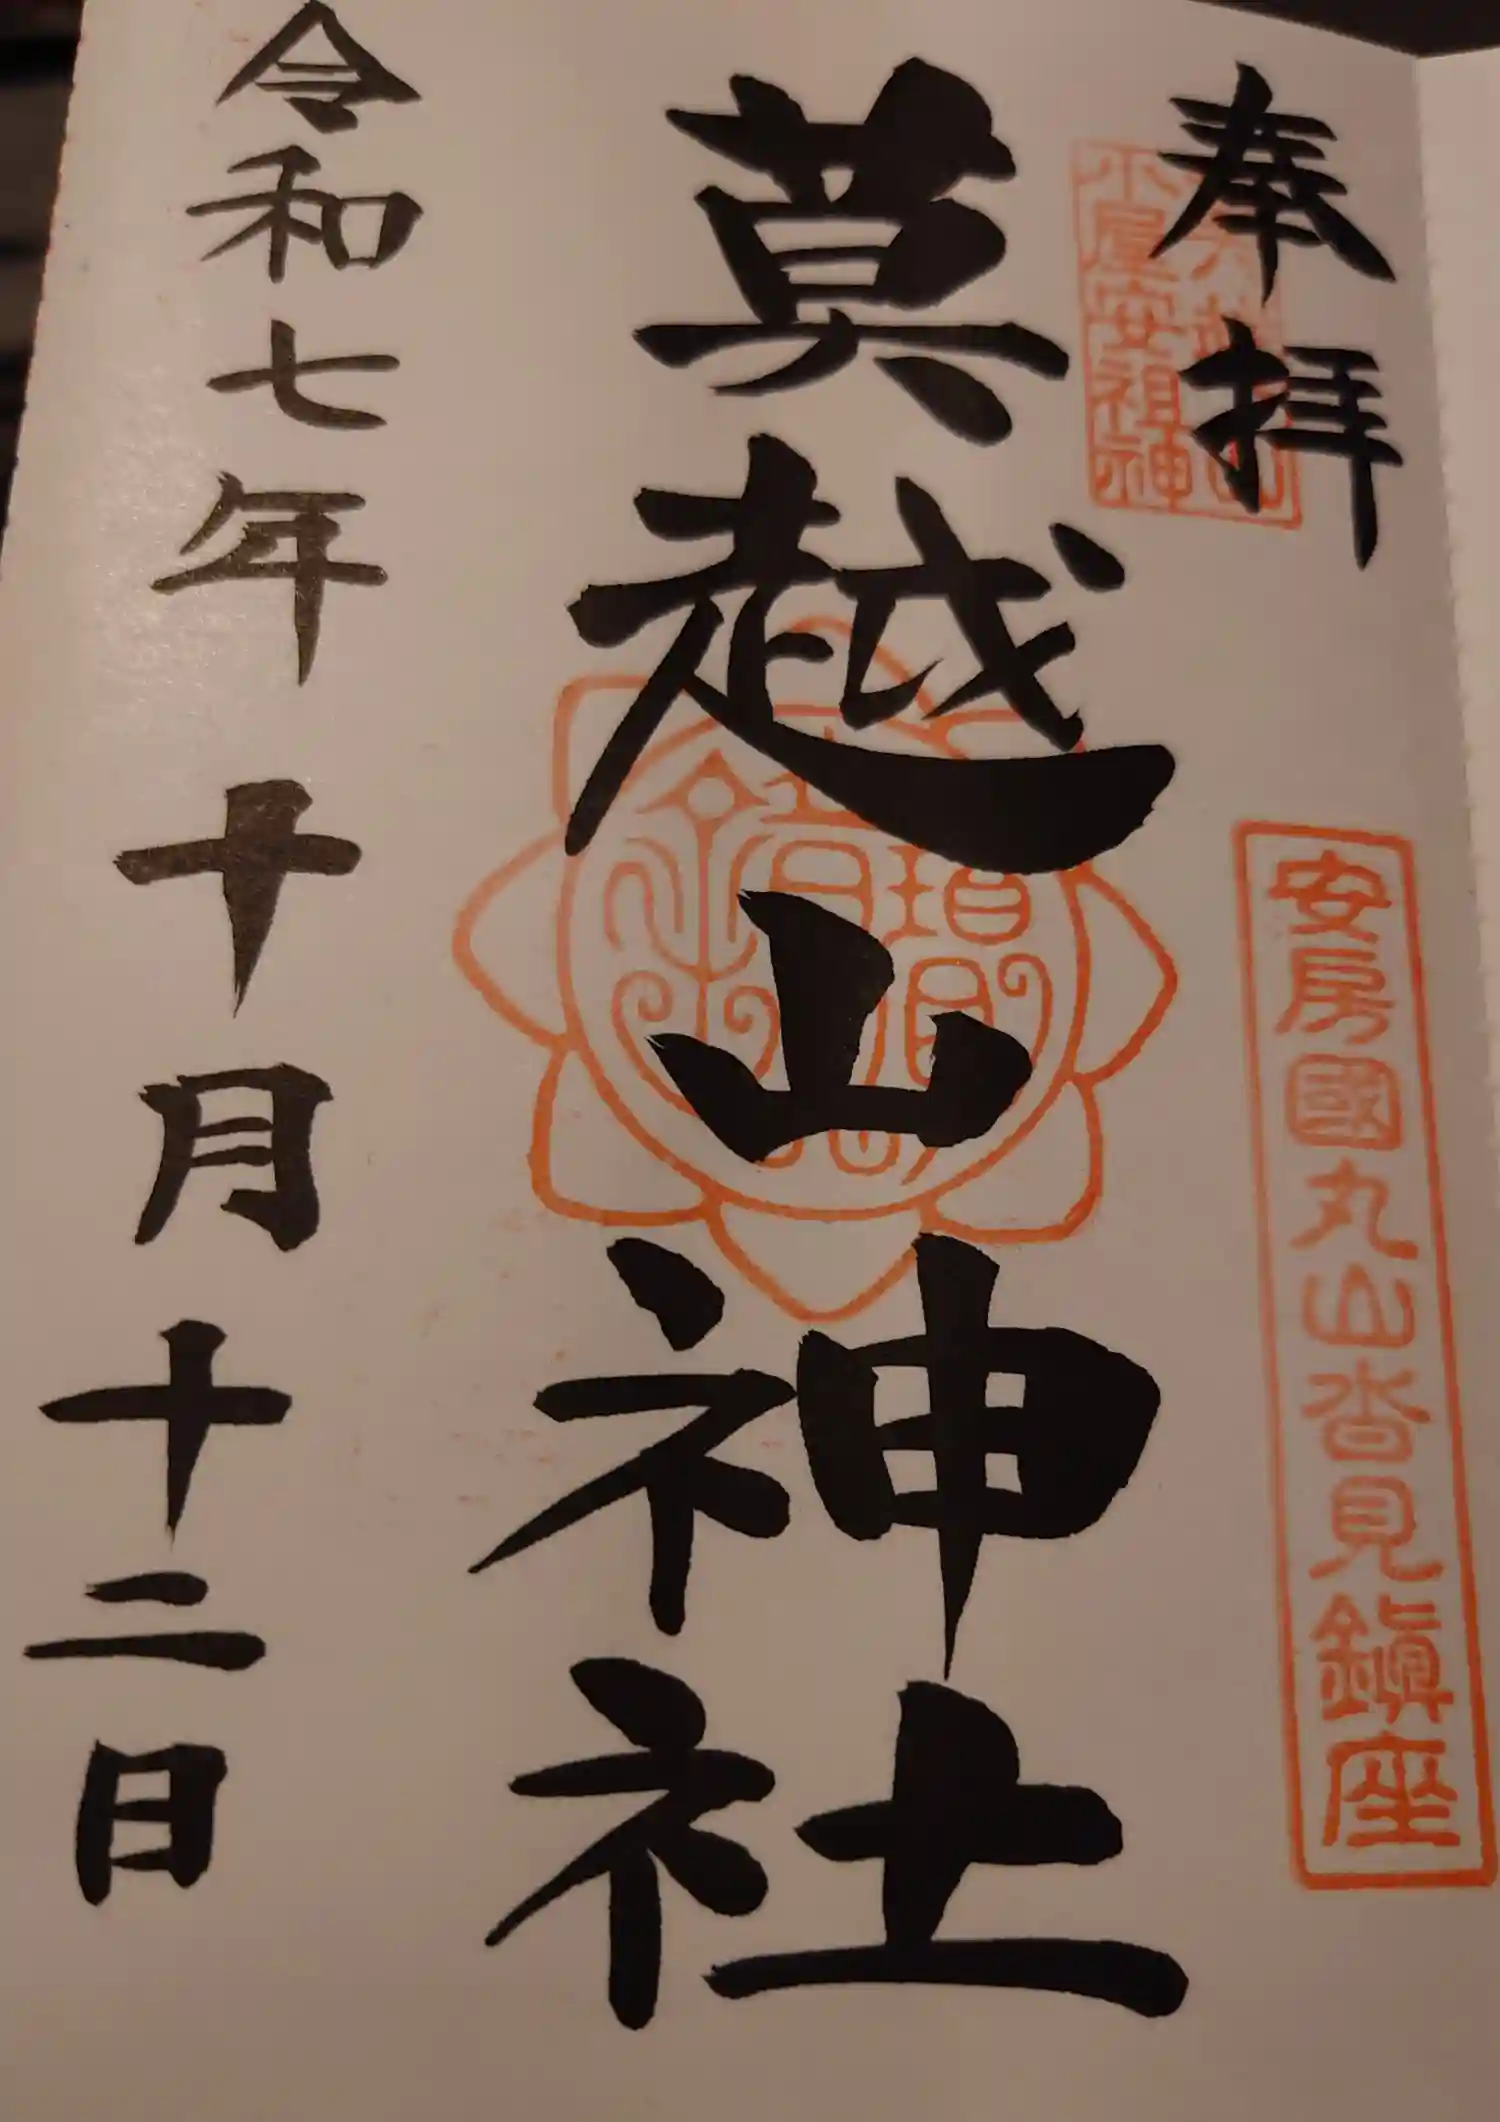 奉拝
小屋安祖神
安房國丸山沓見鎮座
莫越山神社
令和七年十月十二日